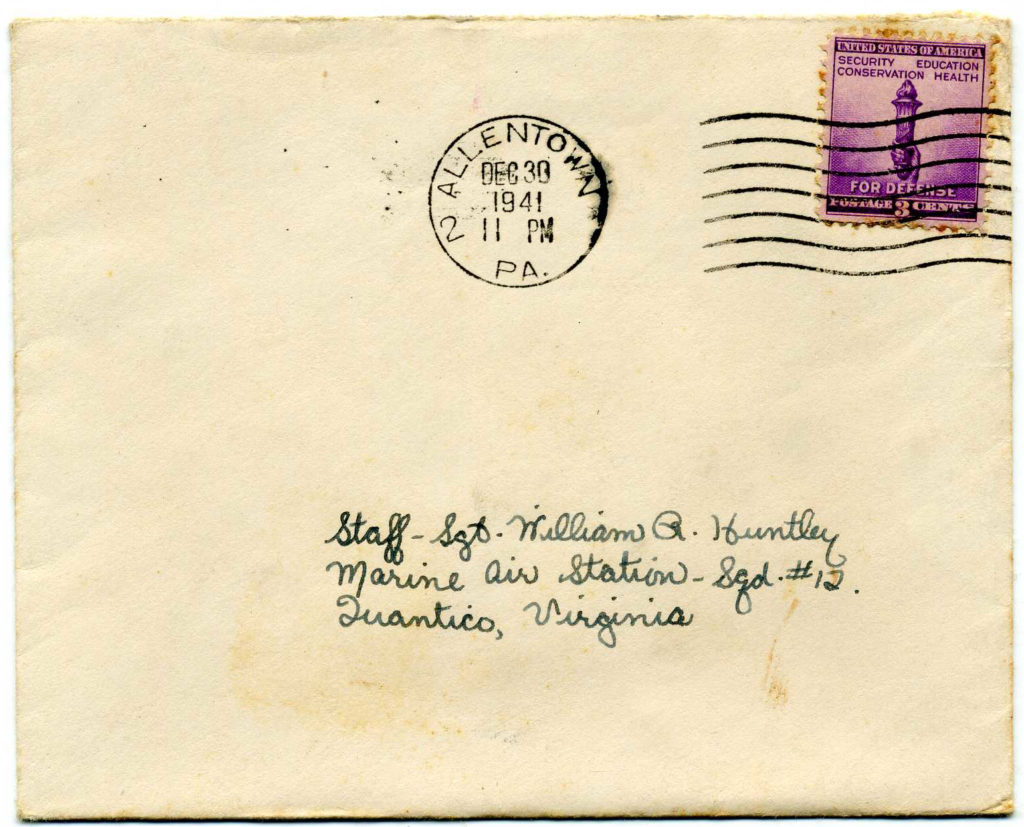 UNITED STATES OF AMERICA
SECURITY EDUCATION
CONSERVATION HEALTH
FOR DEFENSE
POSTAGE 3 CENTS
2 ALLENTOWN
DEC 30
1941
11 PM
PA.
Staff-Sgt. William R. Huntley
Marine Air Station - Sqd. #12.
Quantico, Virginia